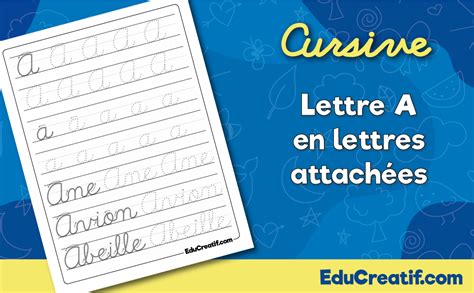 A A A A A
A A A A A
a a a a a
a a a a a
Ane Ane Ane
Avion Avion
Abeille Abeille
EduCreatif.com
Cursive
Lettre A
en lettres
attachées
EduCreatif.com